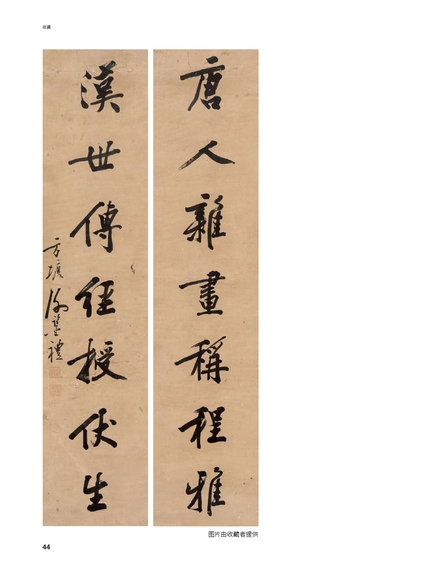 收藏
唐人雜畫稱程雅
漢世傳經授伏生
方
禮
图片由收藏者提供
44